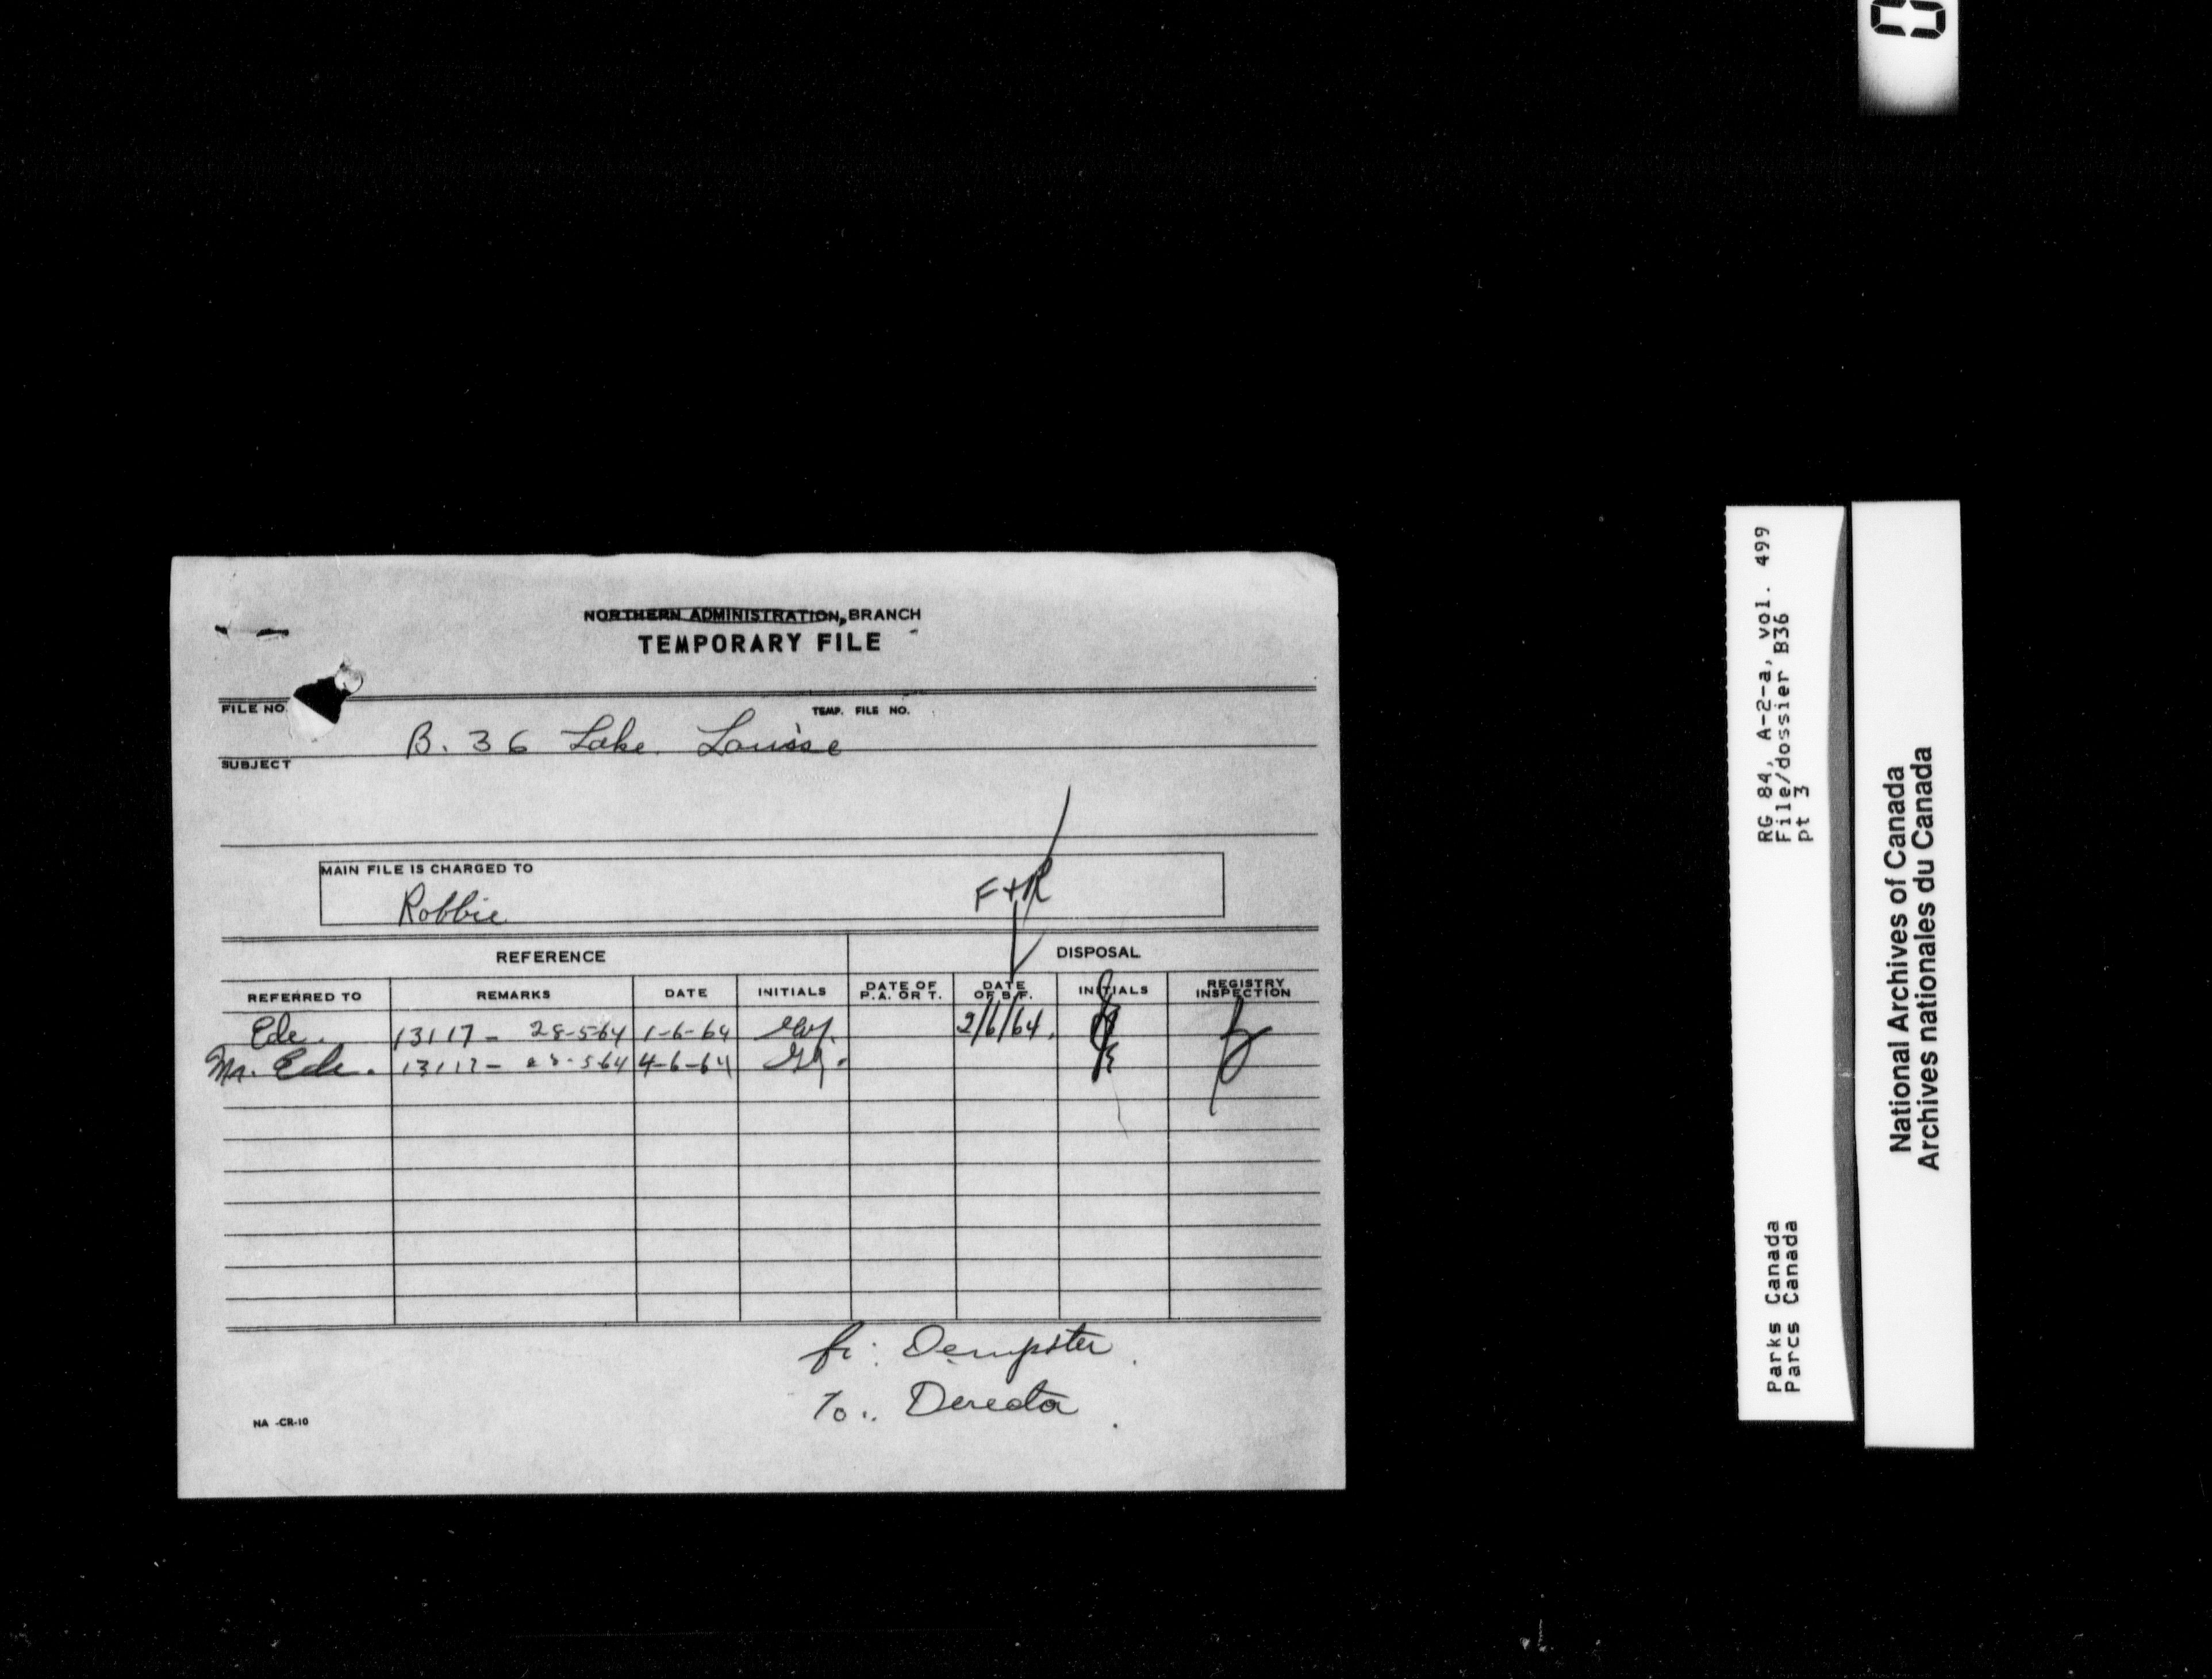 NORTHERN ADMINISTRATION, BRANCH
TEMPORARY FILE
FILE NO. TEMP. FILE NO.
B. 36 Lake Louise
SUBJECT
MAIN FILE IS CHARGED TO
Robbie
F+R
REFERENCE DISPOSAL
REFERRED TO REMARKS DATE INITIALS DATE OF P.A. OR T. DATE OF B.F. INITIALS REGISTRY INSPECTION
Ede. 13117 - 28-5-64 1-6-64 2/6/64.
Mr. Ede. 13117 - 28-5-64 4-6-64
fr: Dempster
To: Director
NA -CR-10
RG 84, A-2-a, vol. 499
File/dossier B36
pt 3
Parks Canada
Parcs Canada
National Archives of Canada
Archives nationales du Canada